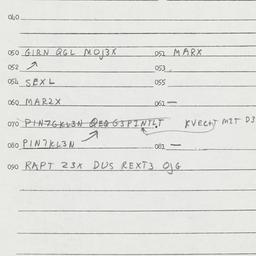 040
050 GIRN QGL MOJ3X 051 MARX
052 053
054 SEXL 055
060 MAR2X 061 —
070 KVECHT MIT D3
080 PIN7KL3N 081 —
090 RAPT 23X DUS REXT3 OJG